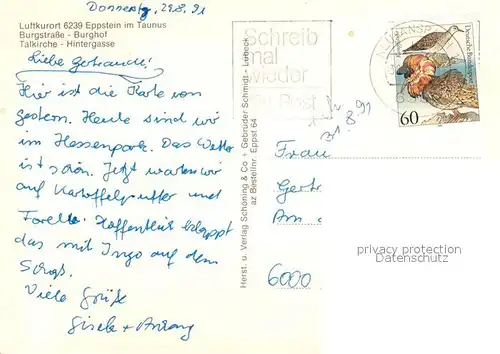 Donnerstag, 29.8.91
Luftkurort 6239 Eppstein im Taunus
Burgstraße - Burghof
Talkirche - Hintergasse
Liebe Gertraude!
Hier ist die Karte von
gestern. Heute sind wir
im Hessenpark. Das Wetter
ist schön. Jetzt warten wir
auf Kartoffelpuffer und
Forelle. Hoffentlich klappt
das mit Ingo auf dem
Viele Grüße
Gisela +
Herst. u. Verlag Schöning & Co + Gebrüder Schmidt - Lübeck
az Bestellnr. Eppst 64
Schreib
mal
wieder
Post
Deutsche Bundespost
60
31.8.91
Frau
Gertr
Am
6000
privacy protection
Datenschutz